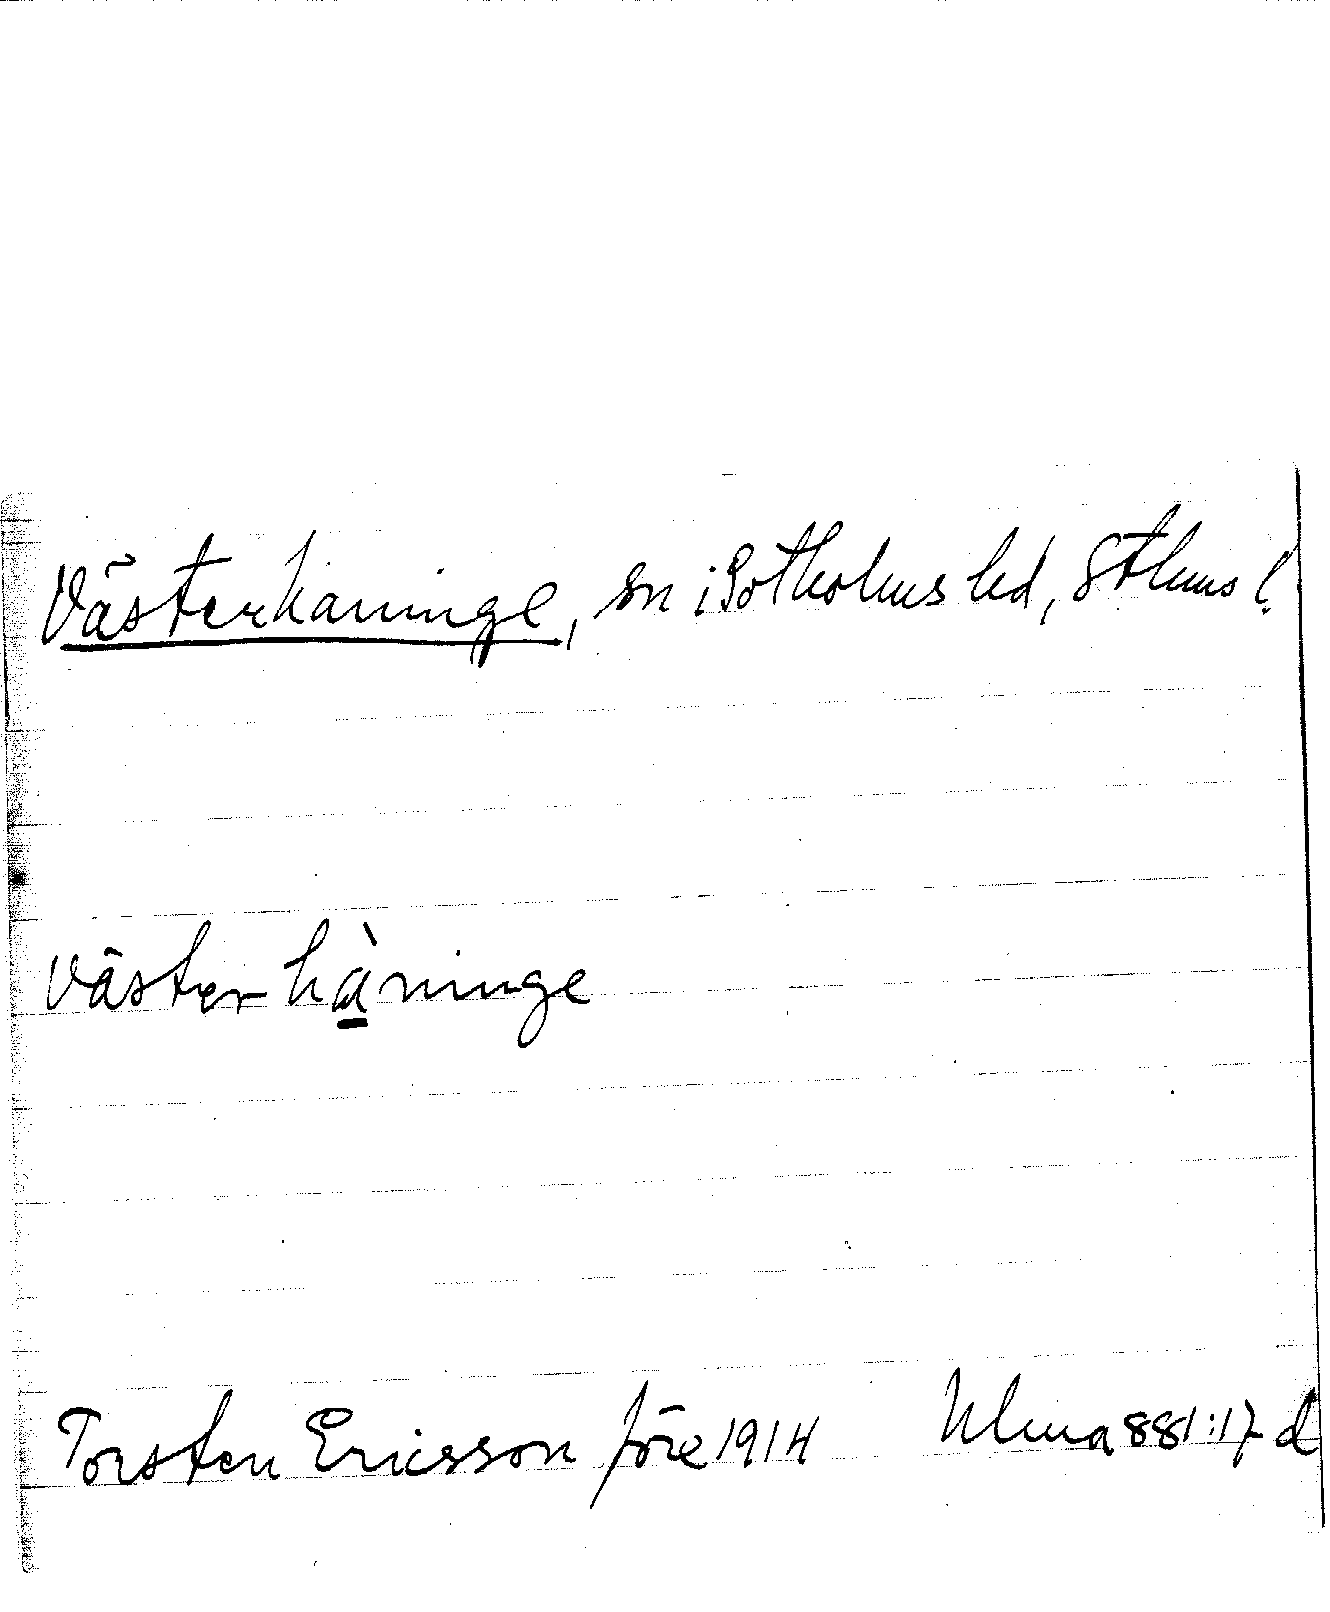 Västerhaninge, sn i Sotholms hd, Sthlms l.
västerhàninge
Torsten Ericsson före 1914 Ulma 881:17 d